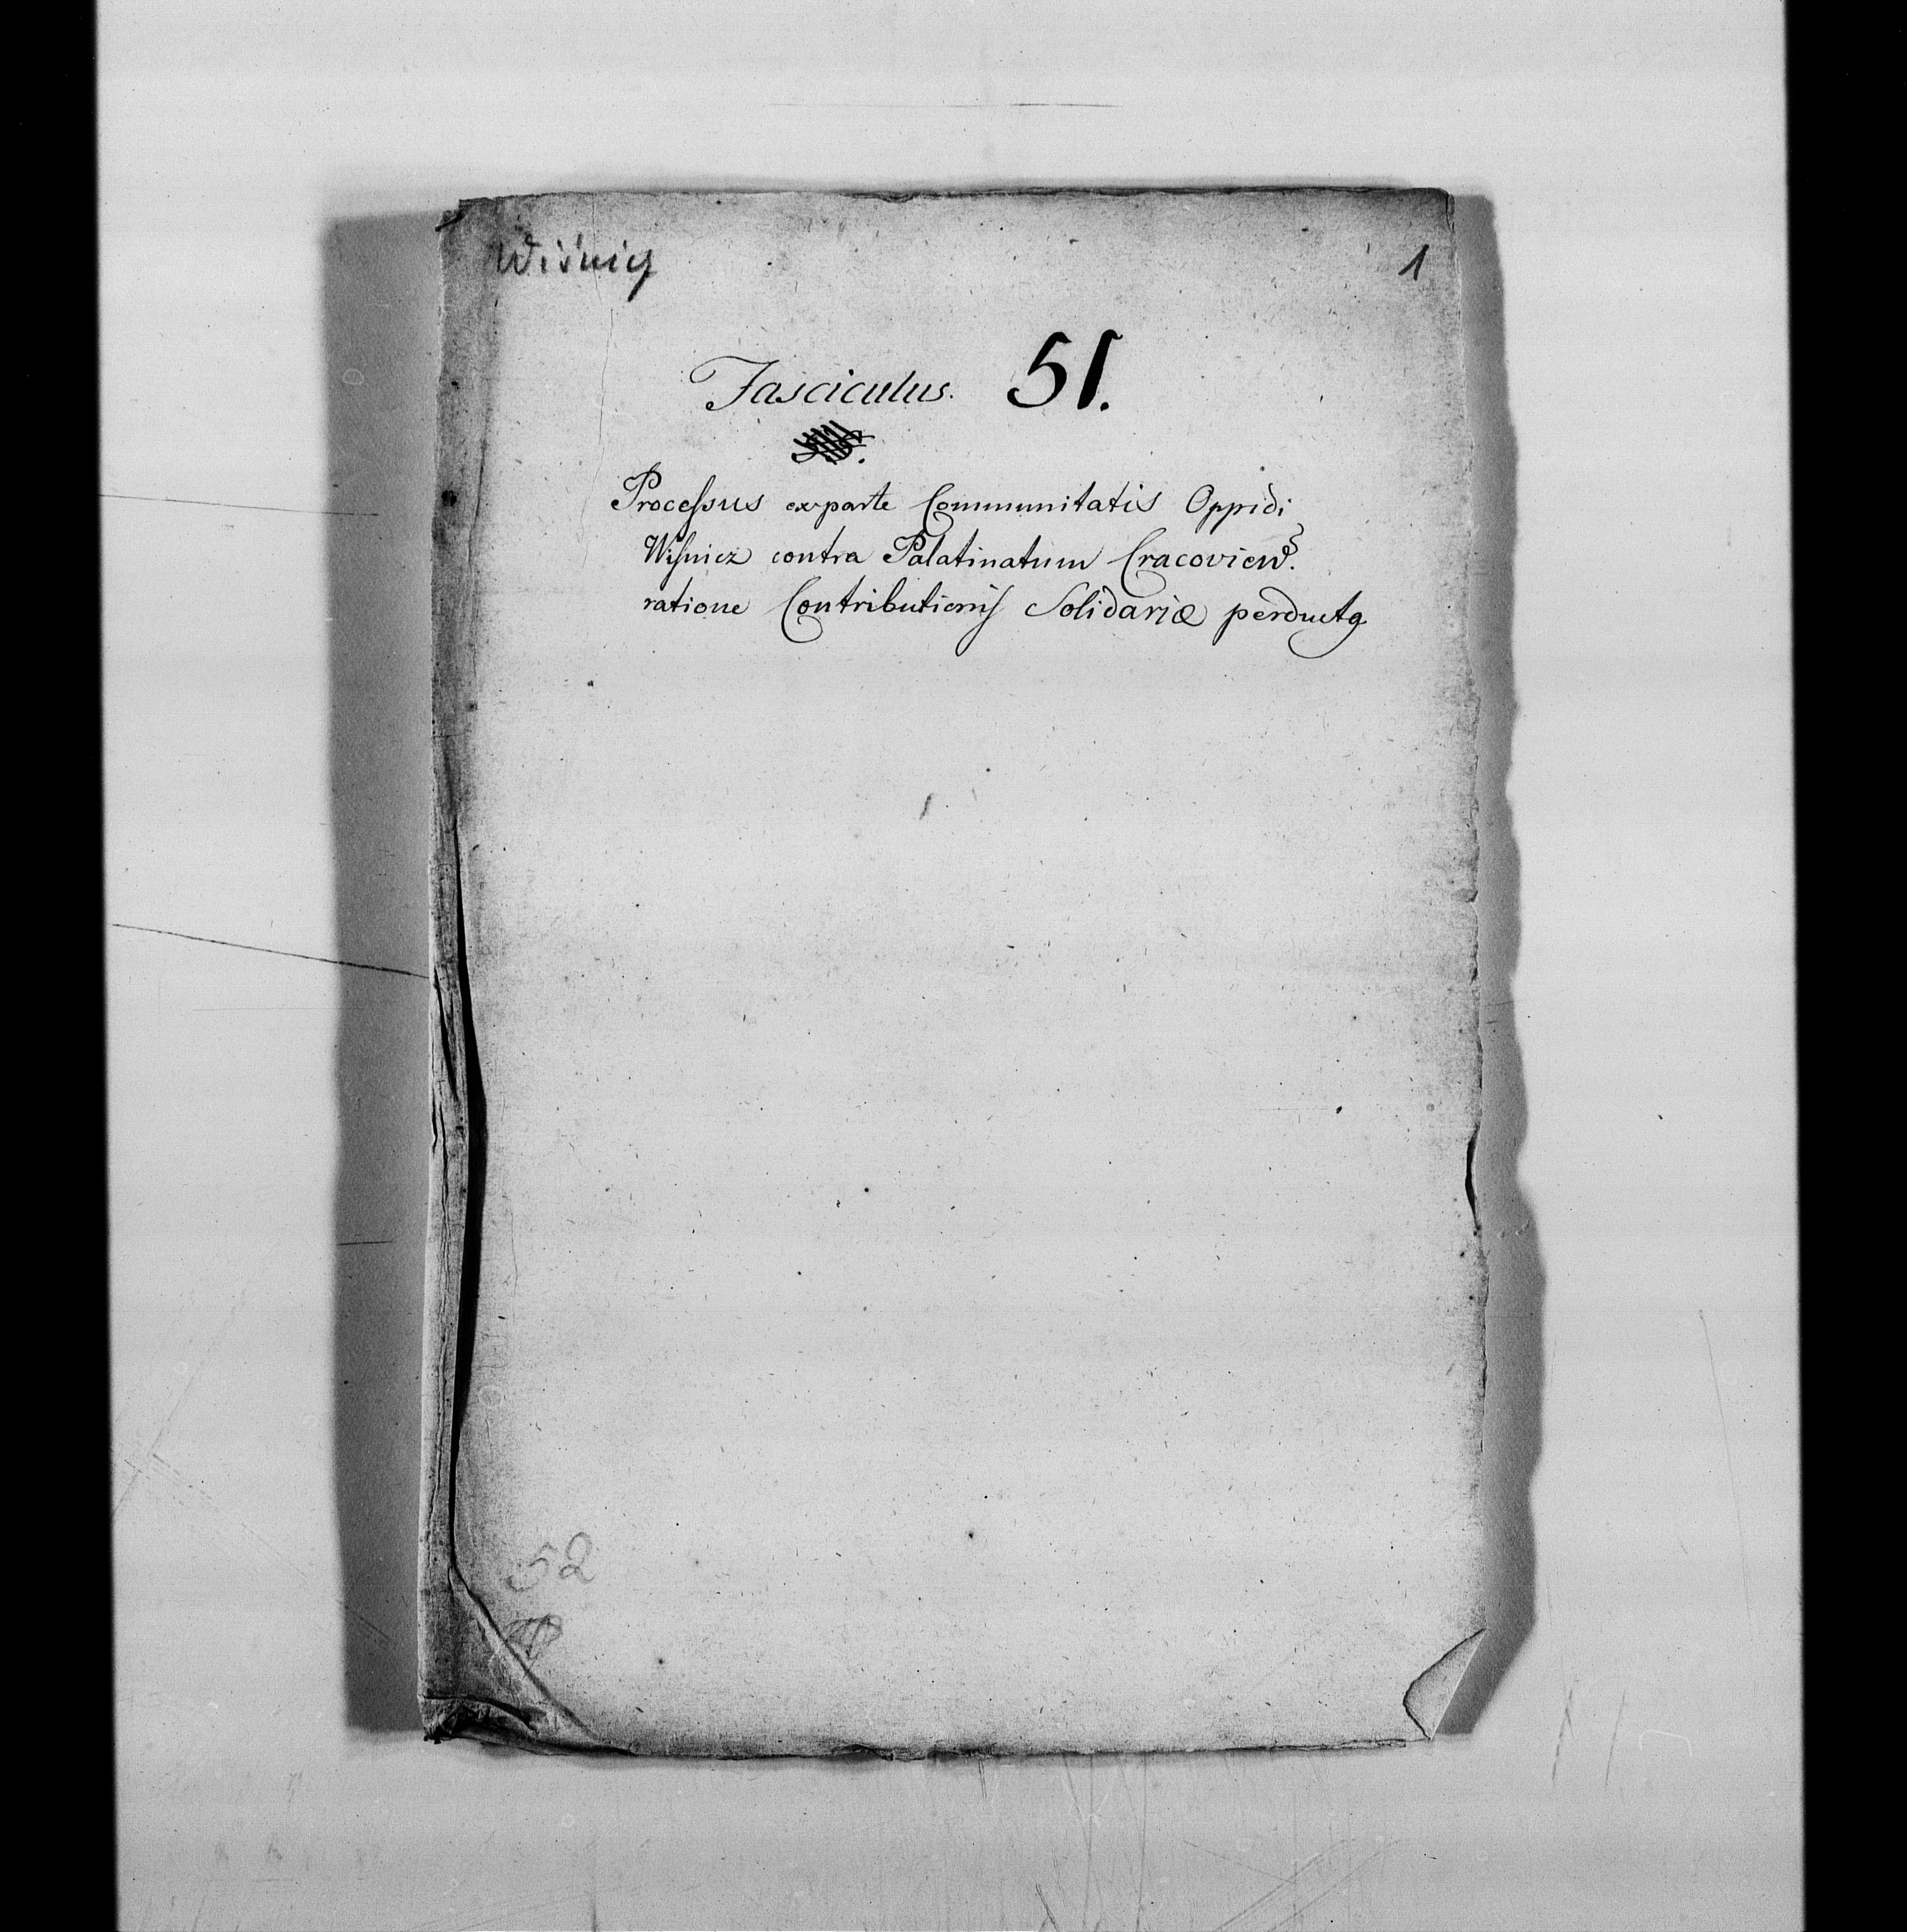 Wiśnicz
1
Fasciculus. 51.
Processus ex parte Communitatis Oppidi
Wiſnicz contra Palatinatum Cracovien̄s.
ratione Contributionis Solidariæ perductꝯ
52